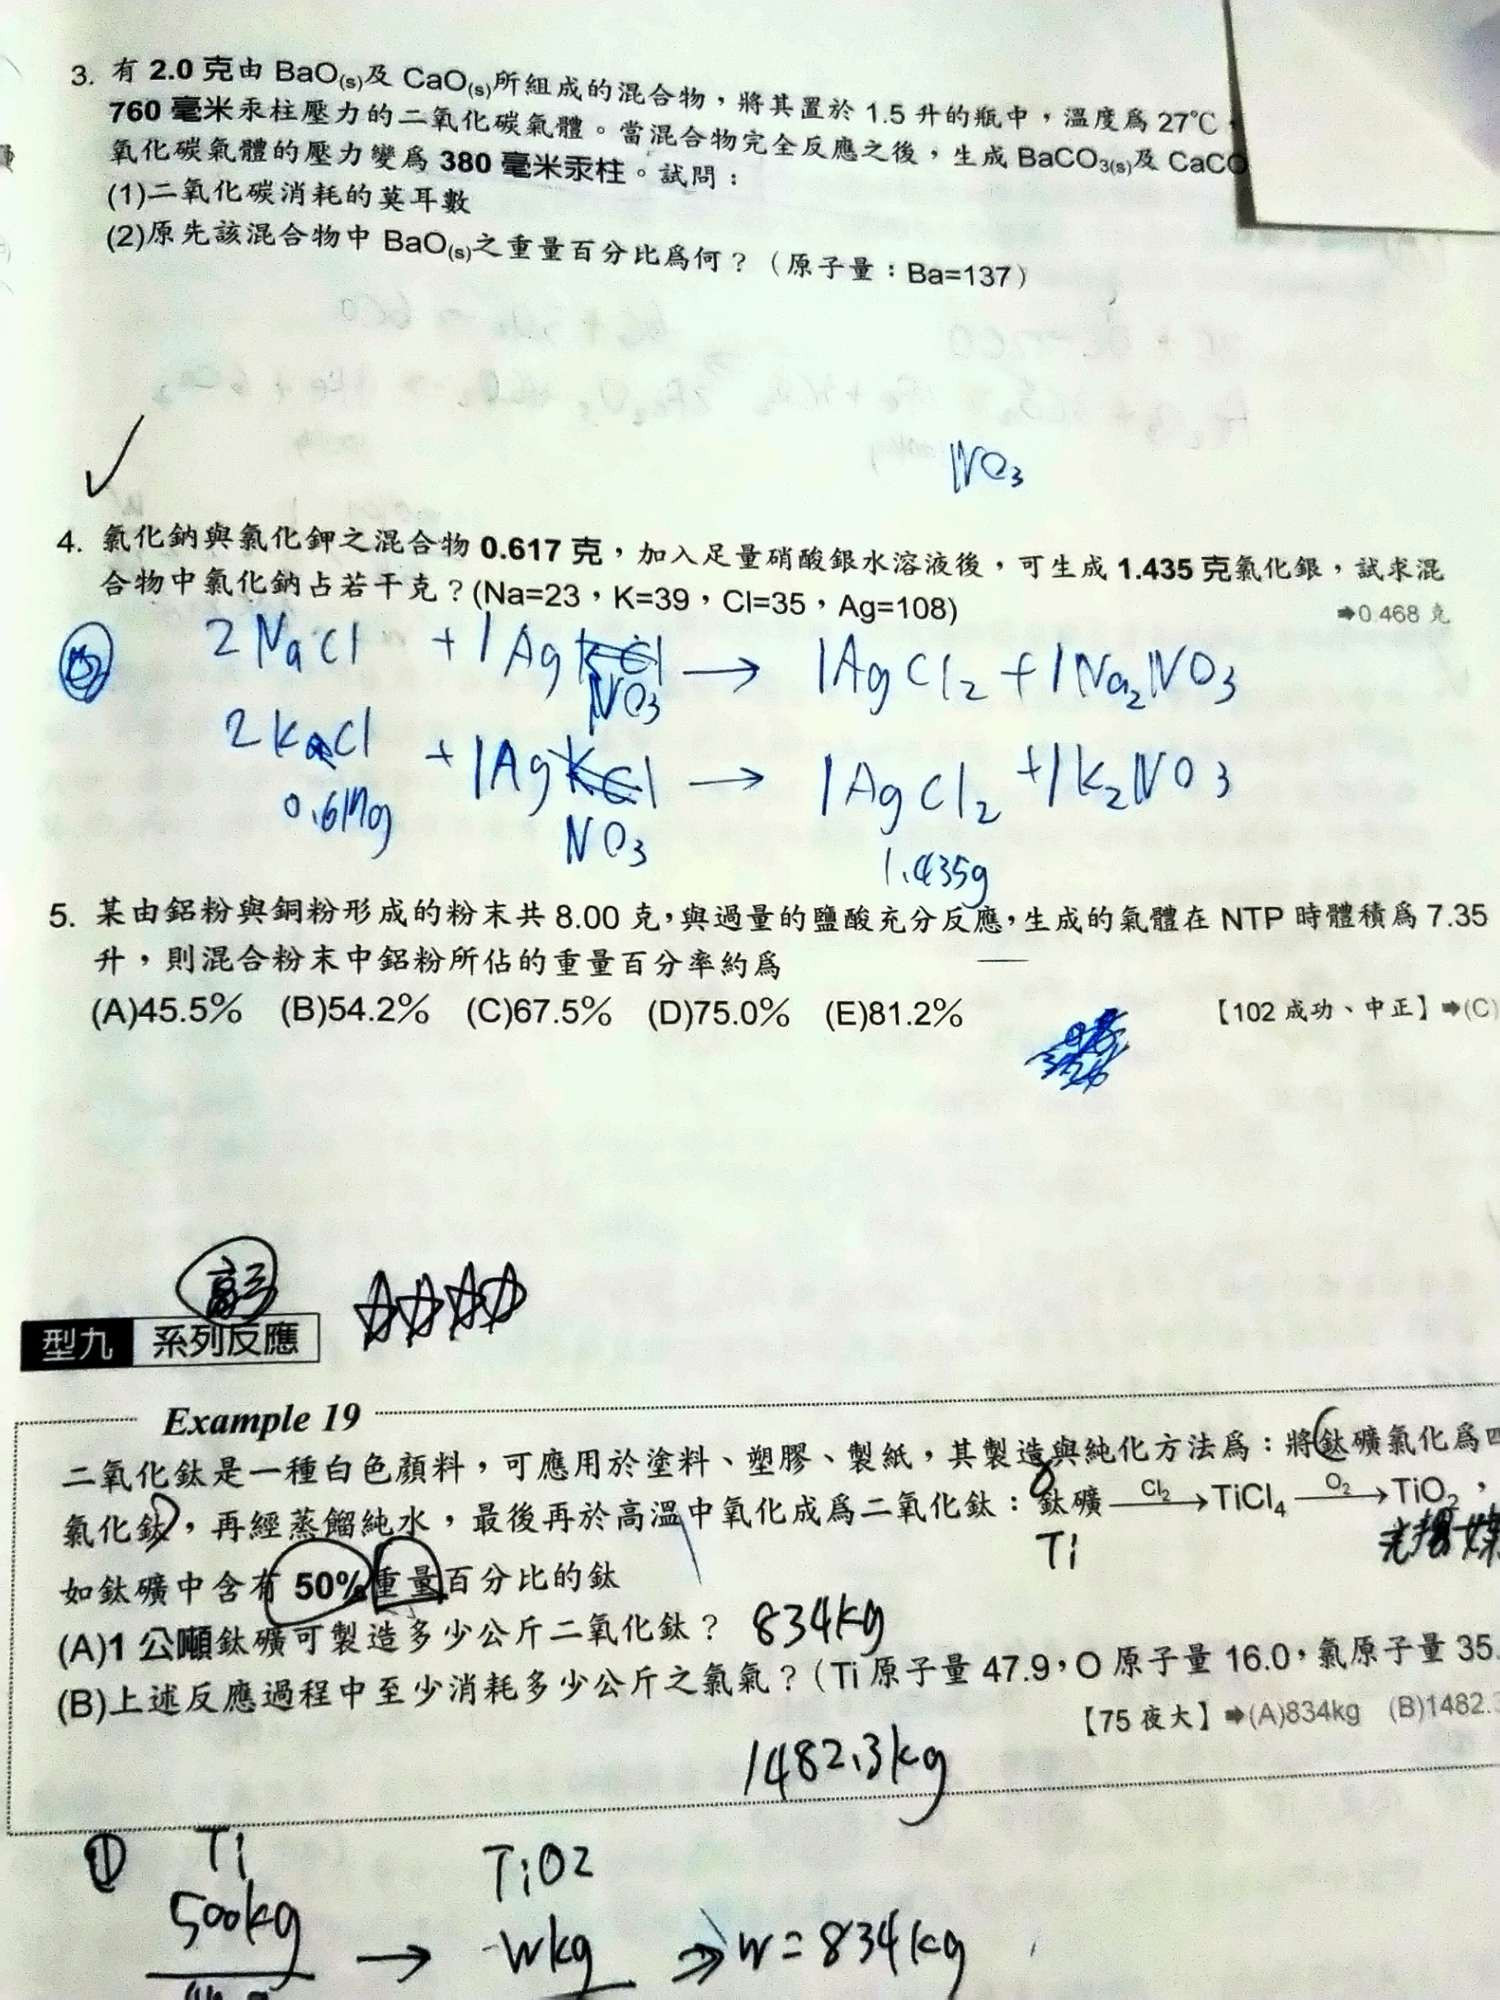 3. 有 2.0 克由 BaO(s)及 CaO(s)所組成的混合物，將其置於 1.5 升的瓶中，溫度為 27℃、
760 毫米汞柱壓力的二氧化碳氣體。當混合物完全反應之後，生成 BaCO3(s)及 CaCO
氧化碳氣體的壓力變為 380 毫米汞柱。試問：
(1)二氧化碳消耗的莫耳數
(2)原先該混合物中 BaO(s)之重量百分比為何？（原子量：Ba=137）
NO3
4. 氯化鈉與氯化鉀之混合物 0.617 克，加入足量硝酸銀水溶液後，可生成 1.435 克氯化銀，試求混
合物中氯化鈉占若干克？(Na=23，K=39，Cl=35，Ag=108) ➡0.468 克
2NaCl + 1Ag NO3 → 1AgCl2 + 1Na2NO3
2KCl + 1Ag NO3 → 1AgCl2 + 1K2NO3
0.617g 1.435g
5. 某由鋁粉與銅粉形成的粉末共 8.00 克，與過量的鹽酸充分反應，生成的氣體在 NTP 時體積為 7.35
升，則混合粉末中鋁粉所佔的重量百分率約為
(A)45.5% (B)54.2% (C)67.5% (D)75.0% (E)81.2% 【102 成功、中正】➡(C)
高三
型九 系列反應
Example 19
二氧化鈦是一種白色顏料，可應用於塗料、塑膠、製紙，其製造與純化方法為：將鈦礦氯化為四
氯化鈦，再經蒸餾純水，最後再於高溫中氧化成為二氧化鈦：鈦礦 Cl2→ TiCl4 O2→ TiO2，
Ti 光觸媒
如鈦礦中含有 50%重量百分比的鈦
(A)1 公噸鈦礦可製造多少公斤二氧化鈦？ 834kg
(B)上述反應過程中至少消耗多少公斤之氯氣？(Ti 原子量 47.9，O 原子量 16.0，氯原子量 35.
【75 夜大】➡(A)834kg (B)1482.3
1482.3kg
① Ti TiO2
500kg → wkg ⇒ w = 834kg